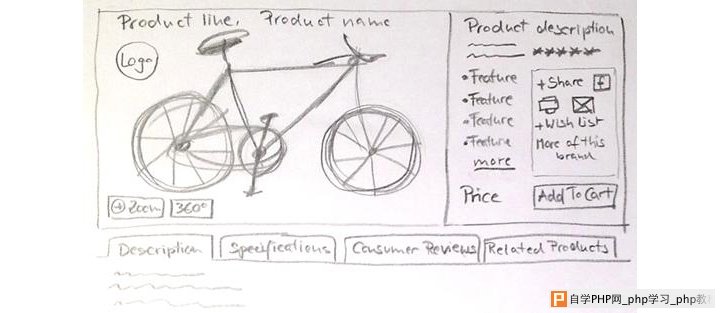 Product line, Product name
Logo
+ Zoom
360°
Product description
★★★★★
• Feature
• Feature
• Feature
• Feature
more
+ Share f
+ Wish List
More of this
brand
Price
Add To Cart
Description
Specifications
Consumer Reviews
Related Products
自学PHP网_php学习_php教程